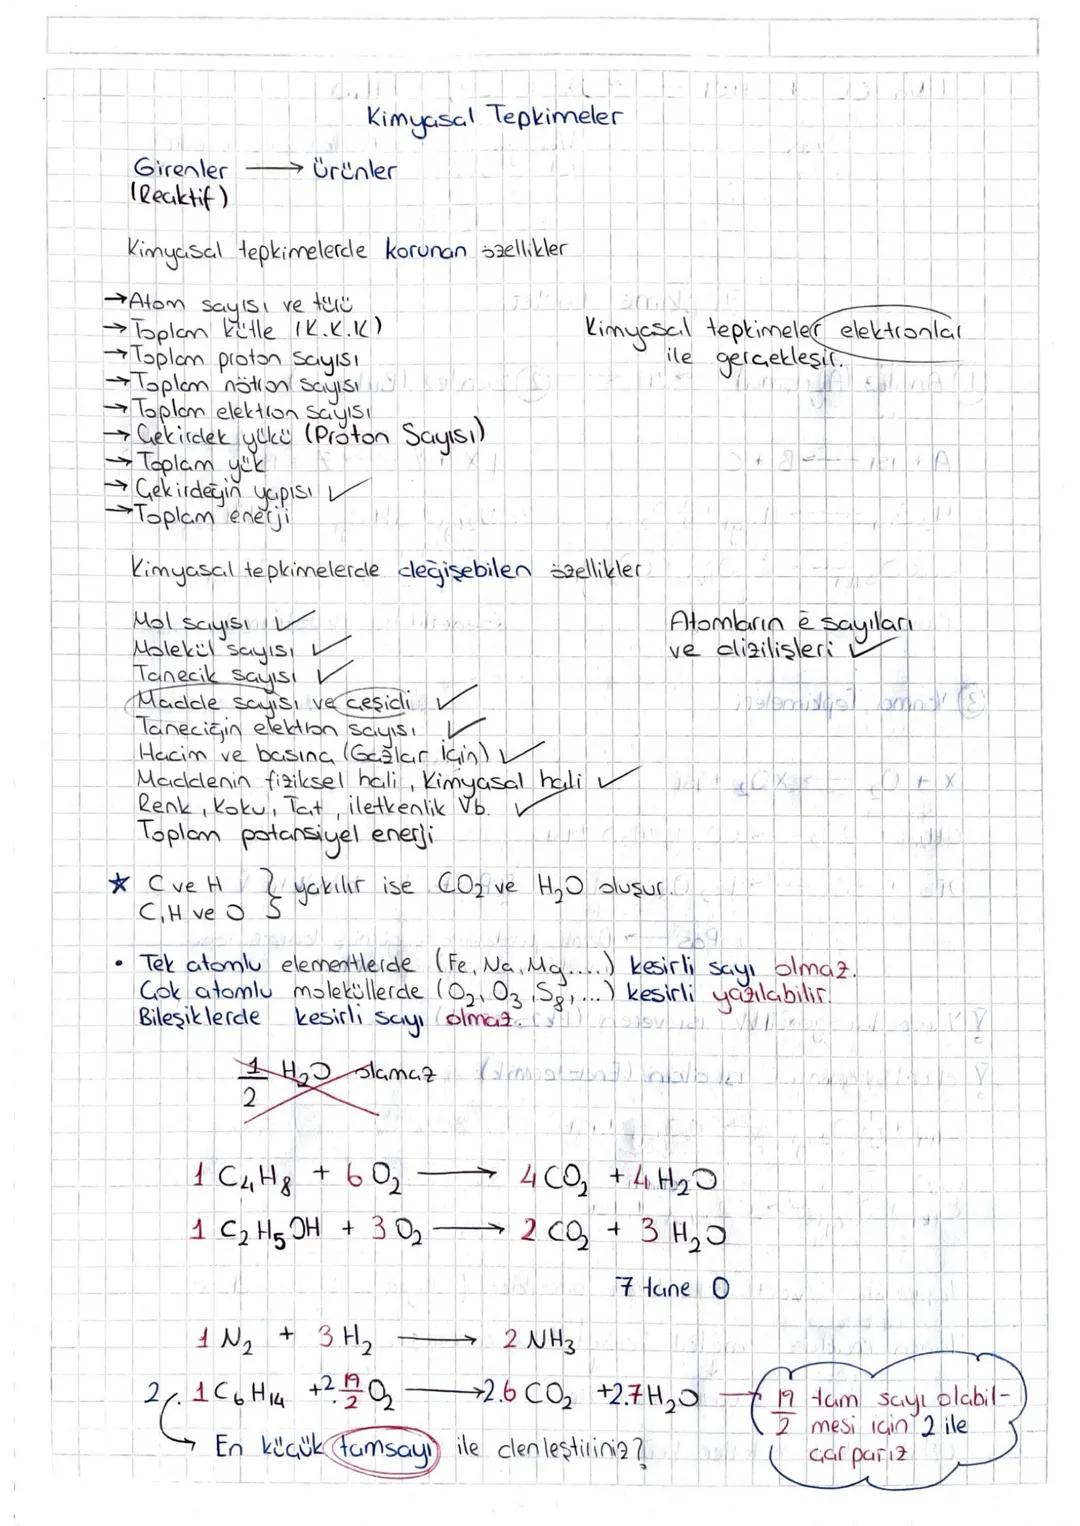 Kimyasal Tepkimeler
Girenler → Ürünler
(Reaktif)
Kimyasal tepkimelerde korunan özellikler
→Atom sayısı ve türü
→Toplam kütle (K.K.K)
→Toplam proton sayısı
→Toplam nötron sayısı
→Toplam elektron sayısı
→Çekirdek yükü (Proton Sayısı)
→Toplam yük
→Çekirdeğin yapısı ✓
→Toplam enerji
Kimyasal tepkimeler elektronlar
ile gerçekleşir.
Kimyasal tepkimelerde değişebilen özellikler
Mol sayısı ✓
Molekül sayısı ✓
Tanecik sayısı ✓
Madde sayısı ve çeşidi ✓
Taneciğin elektron sayısı ✓
Hacim ve basınç (Gazlar İçin) ✓
Maddenin fiziksel hali, Kimyasal hali ✓
Renk, Koku, Tat, iletkenlik Vb. ✓
Toplam potansiyel enerji
Atomların ē sayıları
ve dizilişleri ✓
★ C ve H } yakılır ise CO₂ ve H₂O oluşur.
C,H ve O
• Tek atomlu elementlerde (Fe, Na, Mg....) kesirli sayı olmaz.
Çok atomlu moleküllerde (O₂, O₃, S₈,...) kesirli yazılabilir.
Bileşiklerde kesirli sayı olmaz.
1/2 H₂O olamaz
1 C₄H₈ + 6 O₂ → 4 CO₂ + 4 H₂O
1 C₂H₅OH + 3 O₂ → 2 CO₂ + 3 H₂O
7 tane O
1 N₂ + 3 H₂ → 2 NH₃
2/. 1 C₆H₁₄ +2. 19/2 O₂ → 2.6 CO₂ +2.7 H₂O → 19/2 tam sayı olabil-
mesi için 2 ile
çarparız
→ En küçük tamsayı ile denleştiriniz?